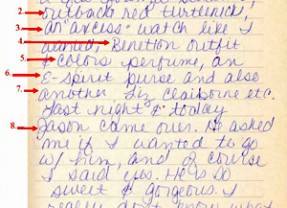 2. outback red turtleneck,
3. an "axcess" watch like I
4. wanted, Benetton outfit
5. & colors perfume, an
6. E-spirit purse and also
7. another Liz claiborne etc.
Last night & today
8. Jason came over. He asked
me if I wanted to go
w/ him, and of course
I said yes. He is so
sweet & gorgeous. I
really don't know what